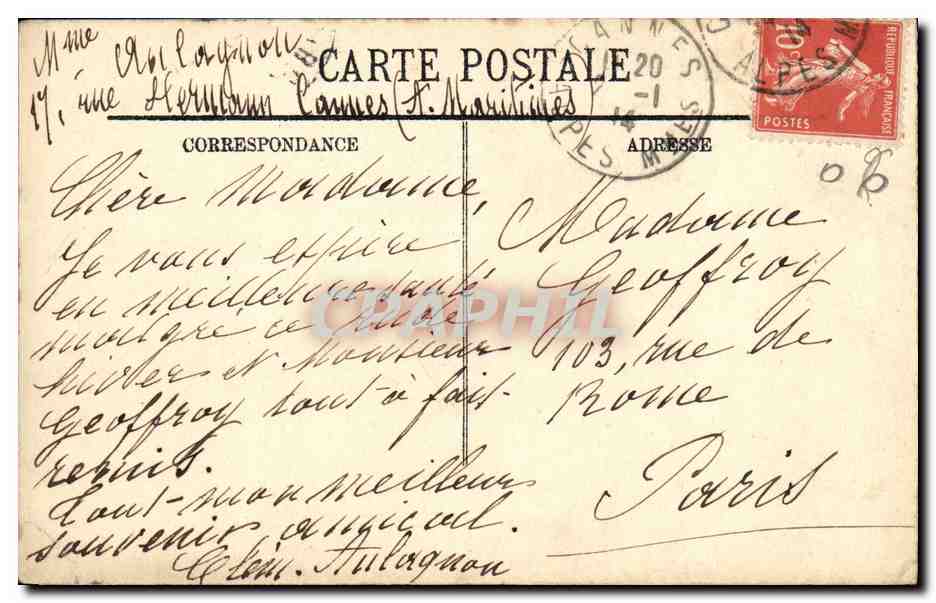 Mme Aulagnon
17, rue Hermann Cannes (A. Maritimes)
CARTE POSTALE
CORRESPONDANCE
ADRESSE
CANNES
20
-1
14
ALPES M MES
ALPES M
10c
REPUBLIQUE FRANÇAISE
POSTES
Chère Madame,
Je vous espère
en meilleure santé
malgré ce rude
hiver et Monsieur
Geoffroy tout-à fait
remis.
Tout mon meilleur
souvenir amical.
Clém. Aulagnon
Madame
Geoffroy
103, rue de
Rome
Paris
CPAPHIL